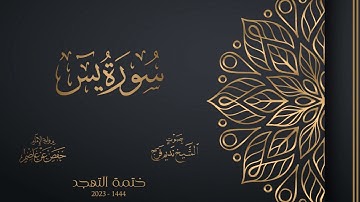 سُورَةُ يس
بصوت
الشيخ نديم فرج
برواية الإمام
حفص عن عاصم
ختمة التهجد
2023 - 1444